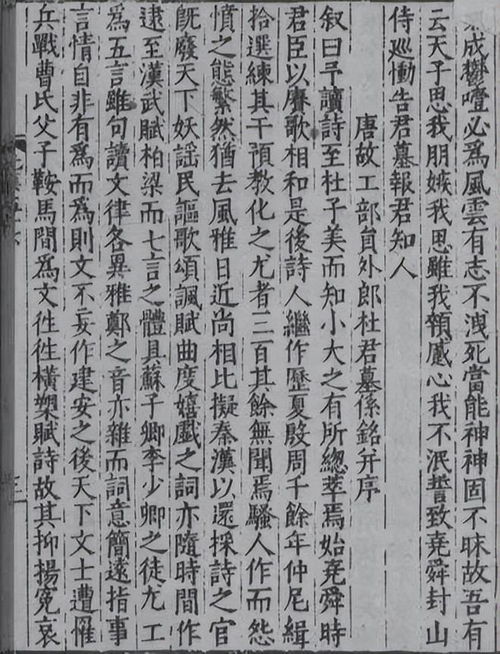 成鬱噎必爲風雲有志不洩死當能神神固不昧故吾有
云天子思我朋嫉我思雖我顇慼心我不泯誓致堯舜封山
侍巡慟告君墓報君知人
唐故工部貟外郎杜君墓係銘并序
叙曰予讀詩至杜子美而知小大之有所緫萃焉始堯舜時
君臣以賡歌相和是後詩人繼作歷夏殷周千餘年仲尼緝
拾選練其干預教化之尤者三百其餘無聞焉騷人作而怨
憤之態繁然猶去風雅日近尚相比擬秦漢以還採詩之官
既廢天下妖謡民謳歌頌諷賦曲度嬉戲之詞亦隨時間作
逮至漢武賦柏梁而七言之體具蘇子卿李少卿之徒尤工
爲五言雖句讀文律各異雅鄭之音亦雜而詞意簡遠指事
言情自非有爲而爲則文不妄作建安之後天下文士遭罹
兵戰曹氏父子鞍馬間爲文徃徃橫槊賦詩故其抑揚冤哀